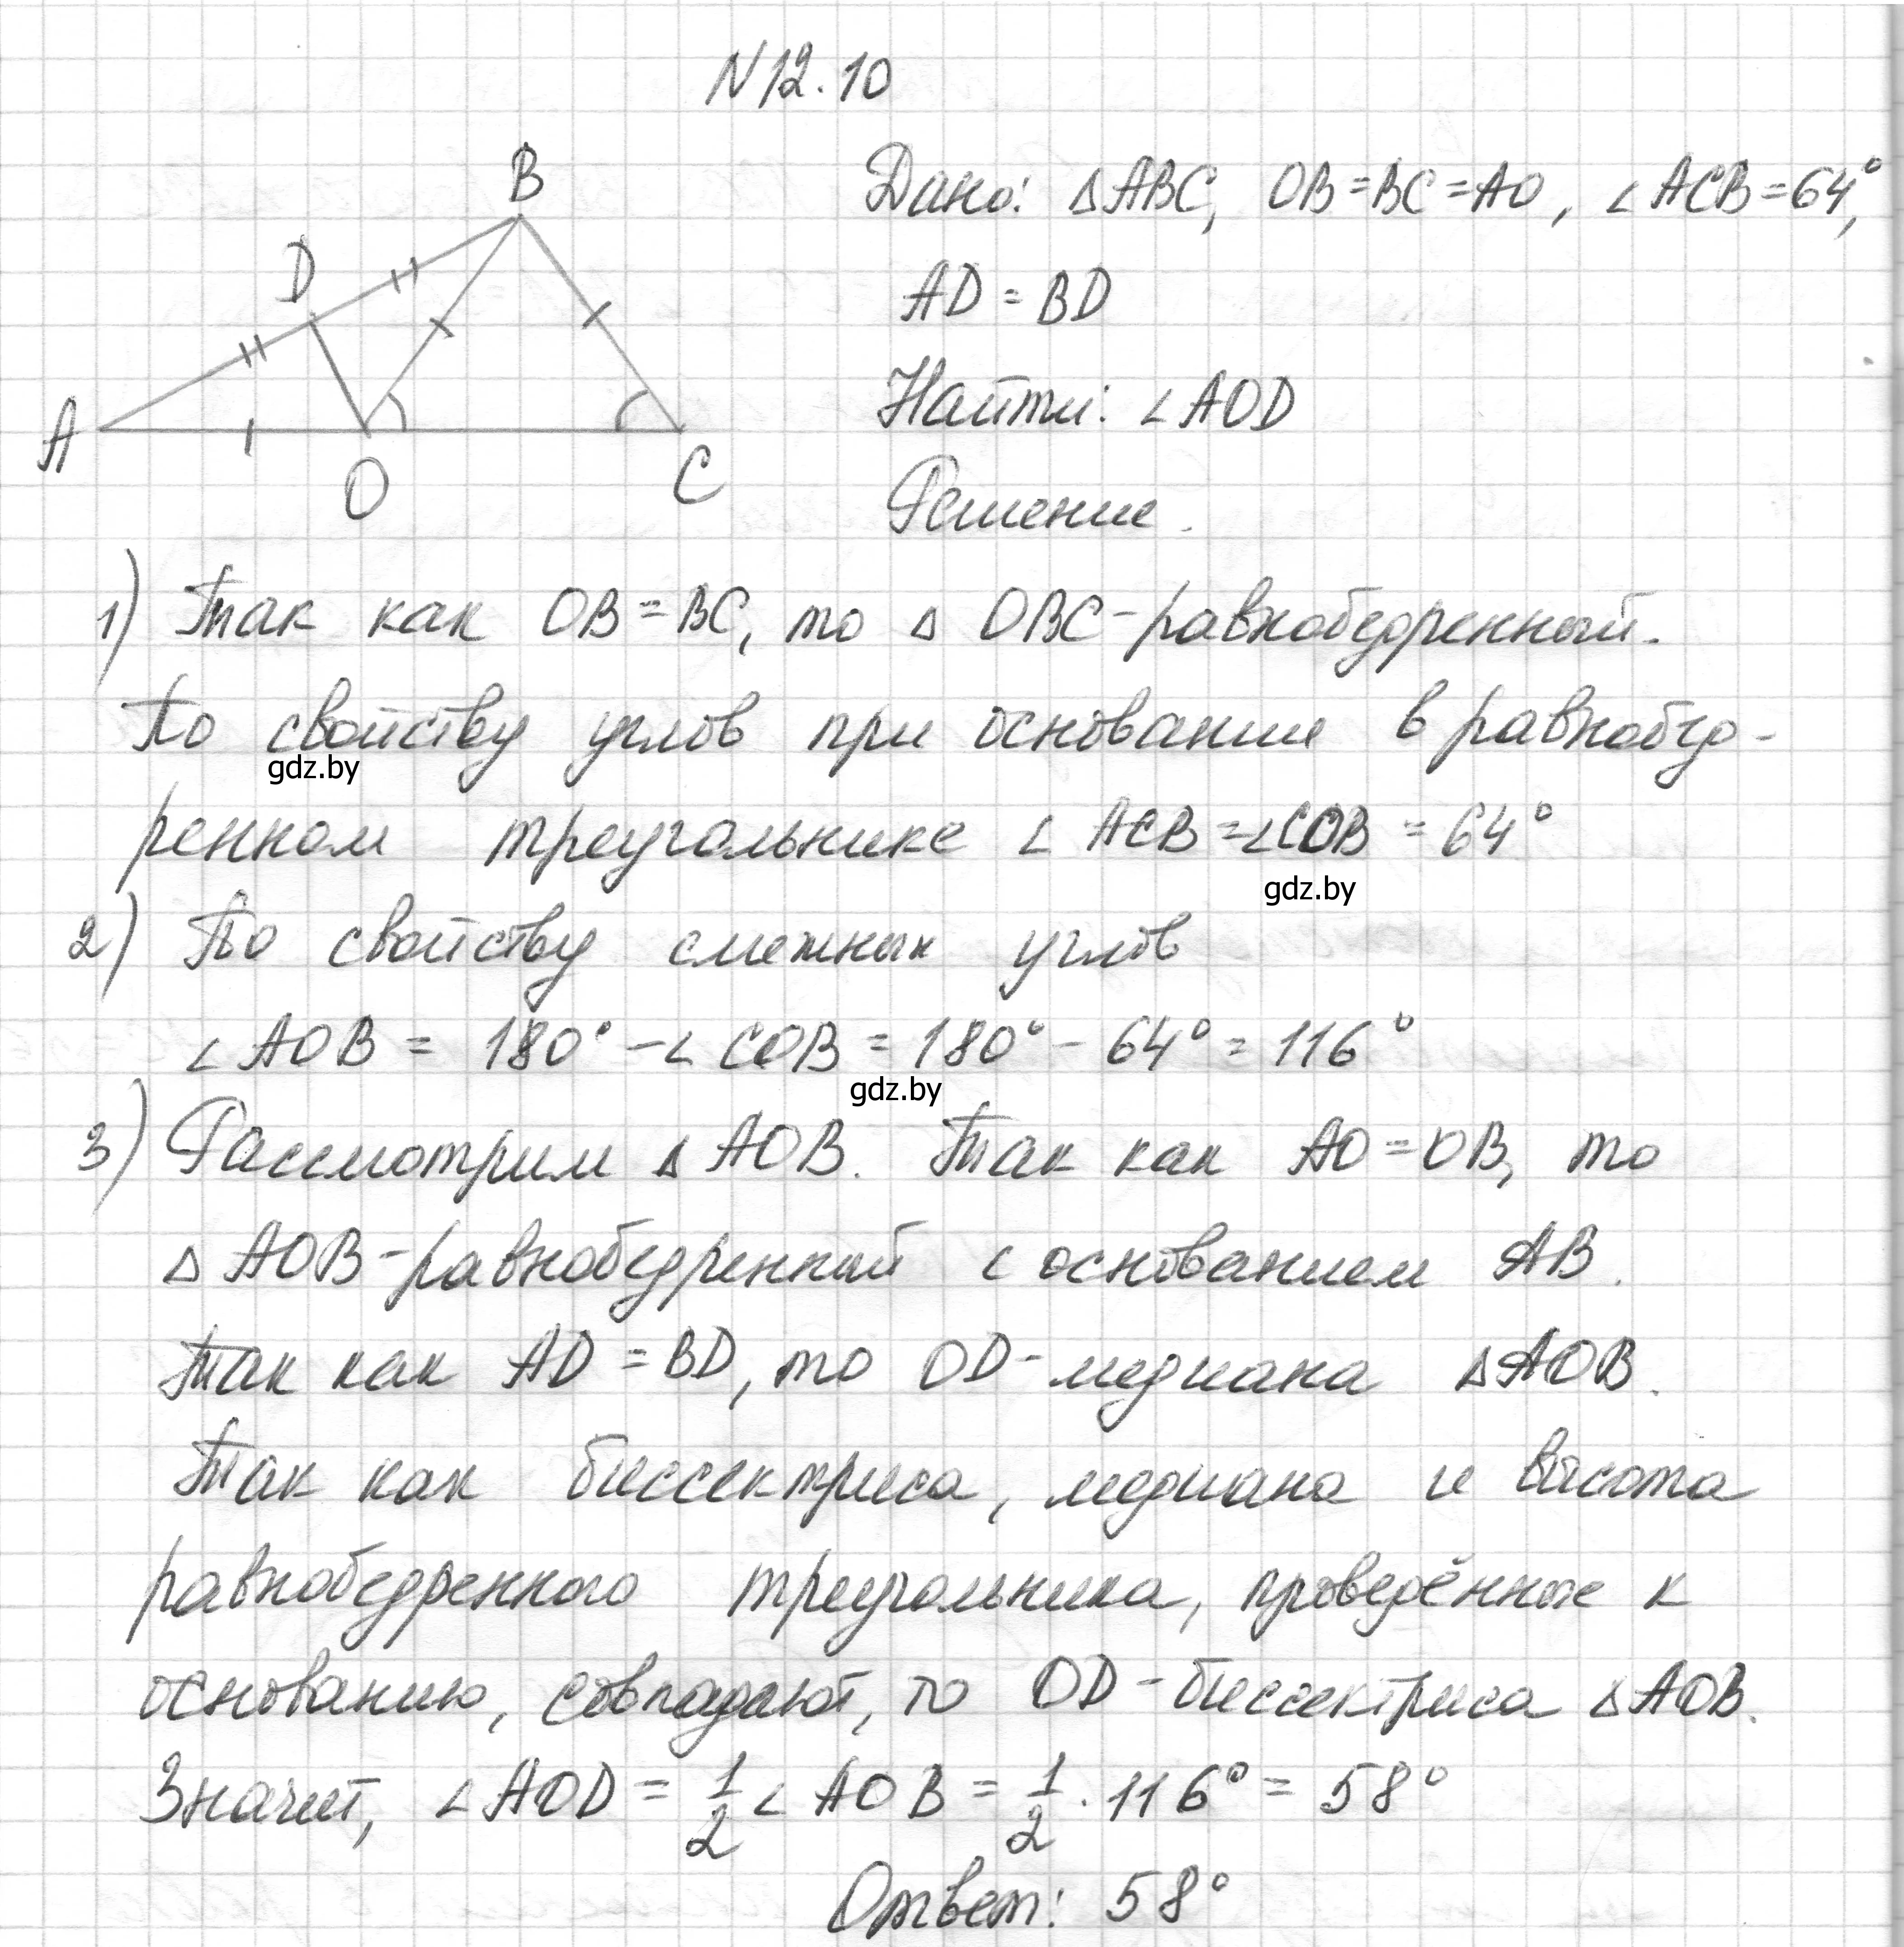 N12.10
B
D
A
O
C
Дано: △ABC, OB=BC=AO, ∠ACB=64°,
AD = BD
Найти: ∠AOD
Решение.
1) Так как OB=BC, то △ OBC-равнобедренный.
По свойству углов при основании в равнобед-
gdz.by
ренном треугольнике ∠ ACB=∠COB = 64°
gdz.by
2) По свойству смежных углов
∠AOB = 180° -∠COB = 180° - 64° = 116°
gdz.by
3) Рассмотрим △ AOB. Так как AO=OB, то
△ AOB-равнобедренный с основанием AB.
Так как AD=BD, то OD-медиана △AOB.
Так как биссектриса, медиана и высота
равнобедренного треугольника, проведённые к
основанию, совпадают, то OD-биссектриса △AOB.
Значит, ∠AOD = 1/2 ∠ AOB = 1/2 · 116° = 58°
Ответ: 58°